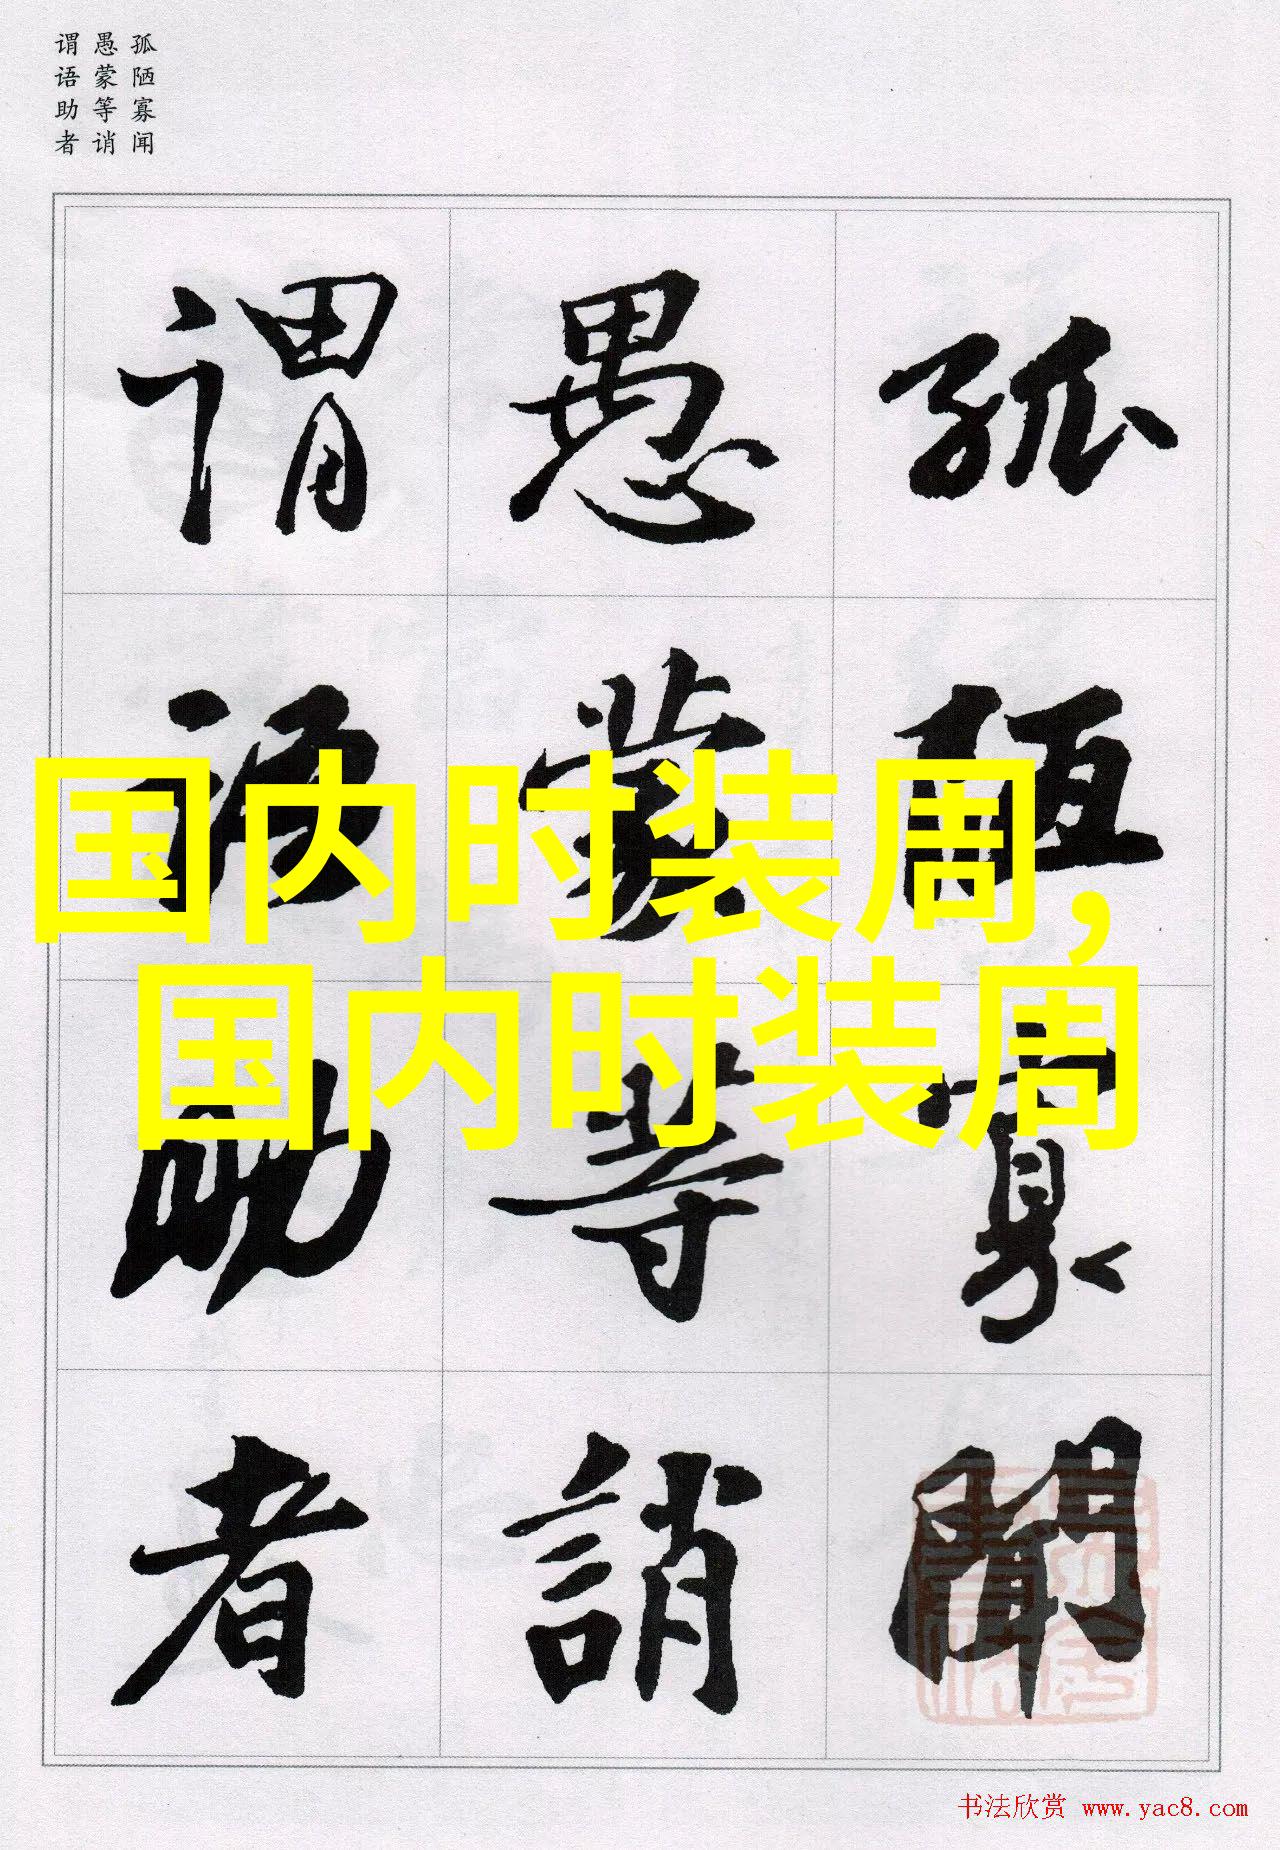 孤陋寡闻
愚蒙等诮
谓语助者
孤陋寡聞
愚蒙等誚
谓语助者
国内时装周，
国内时装周
书法欣赏 www.yac8.com